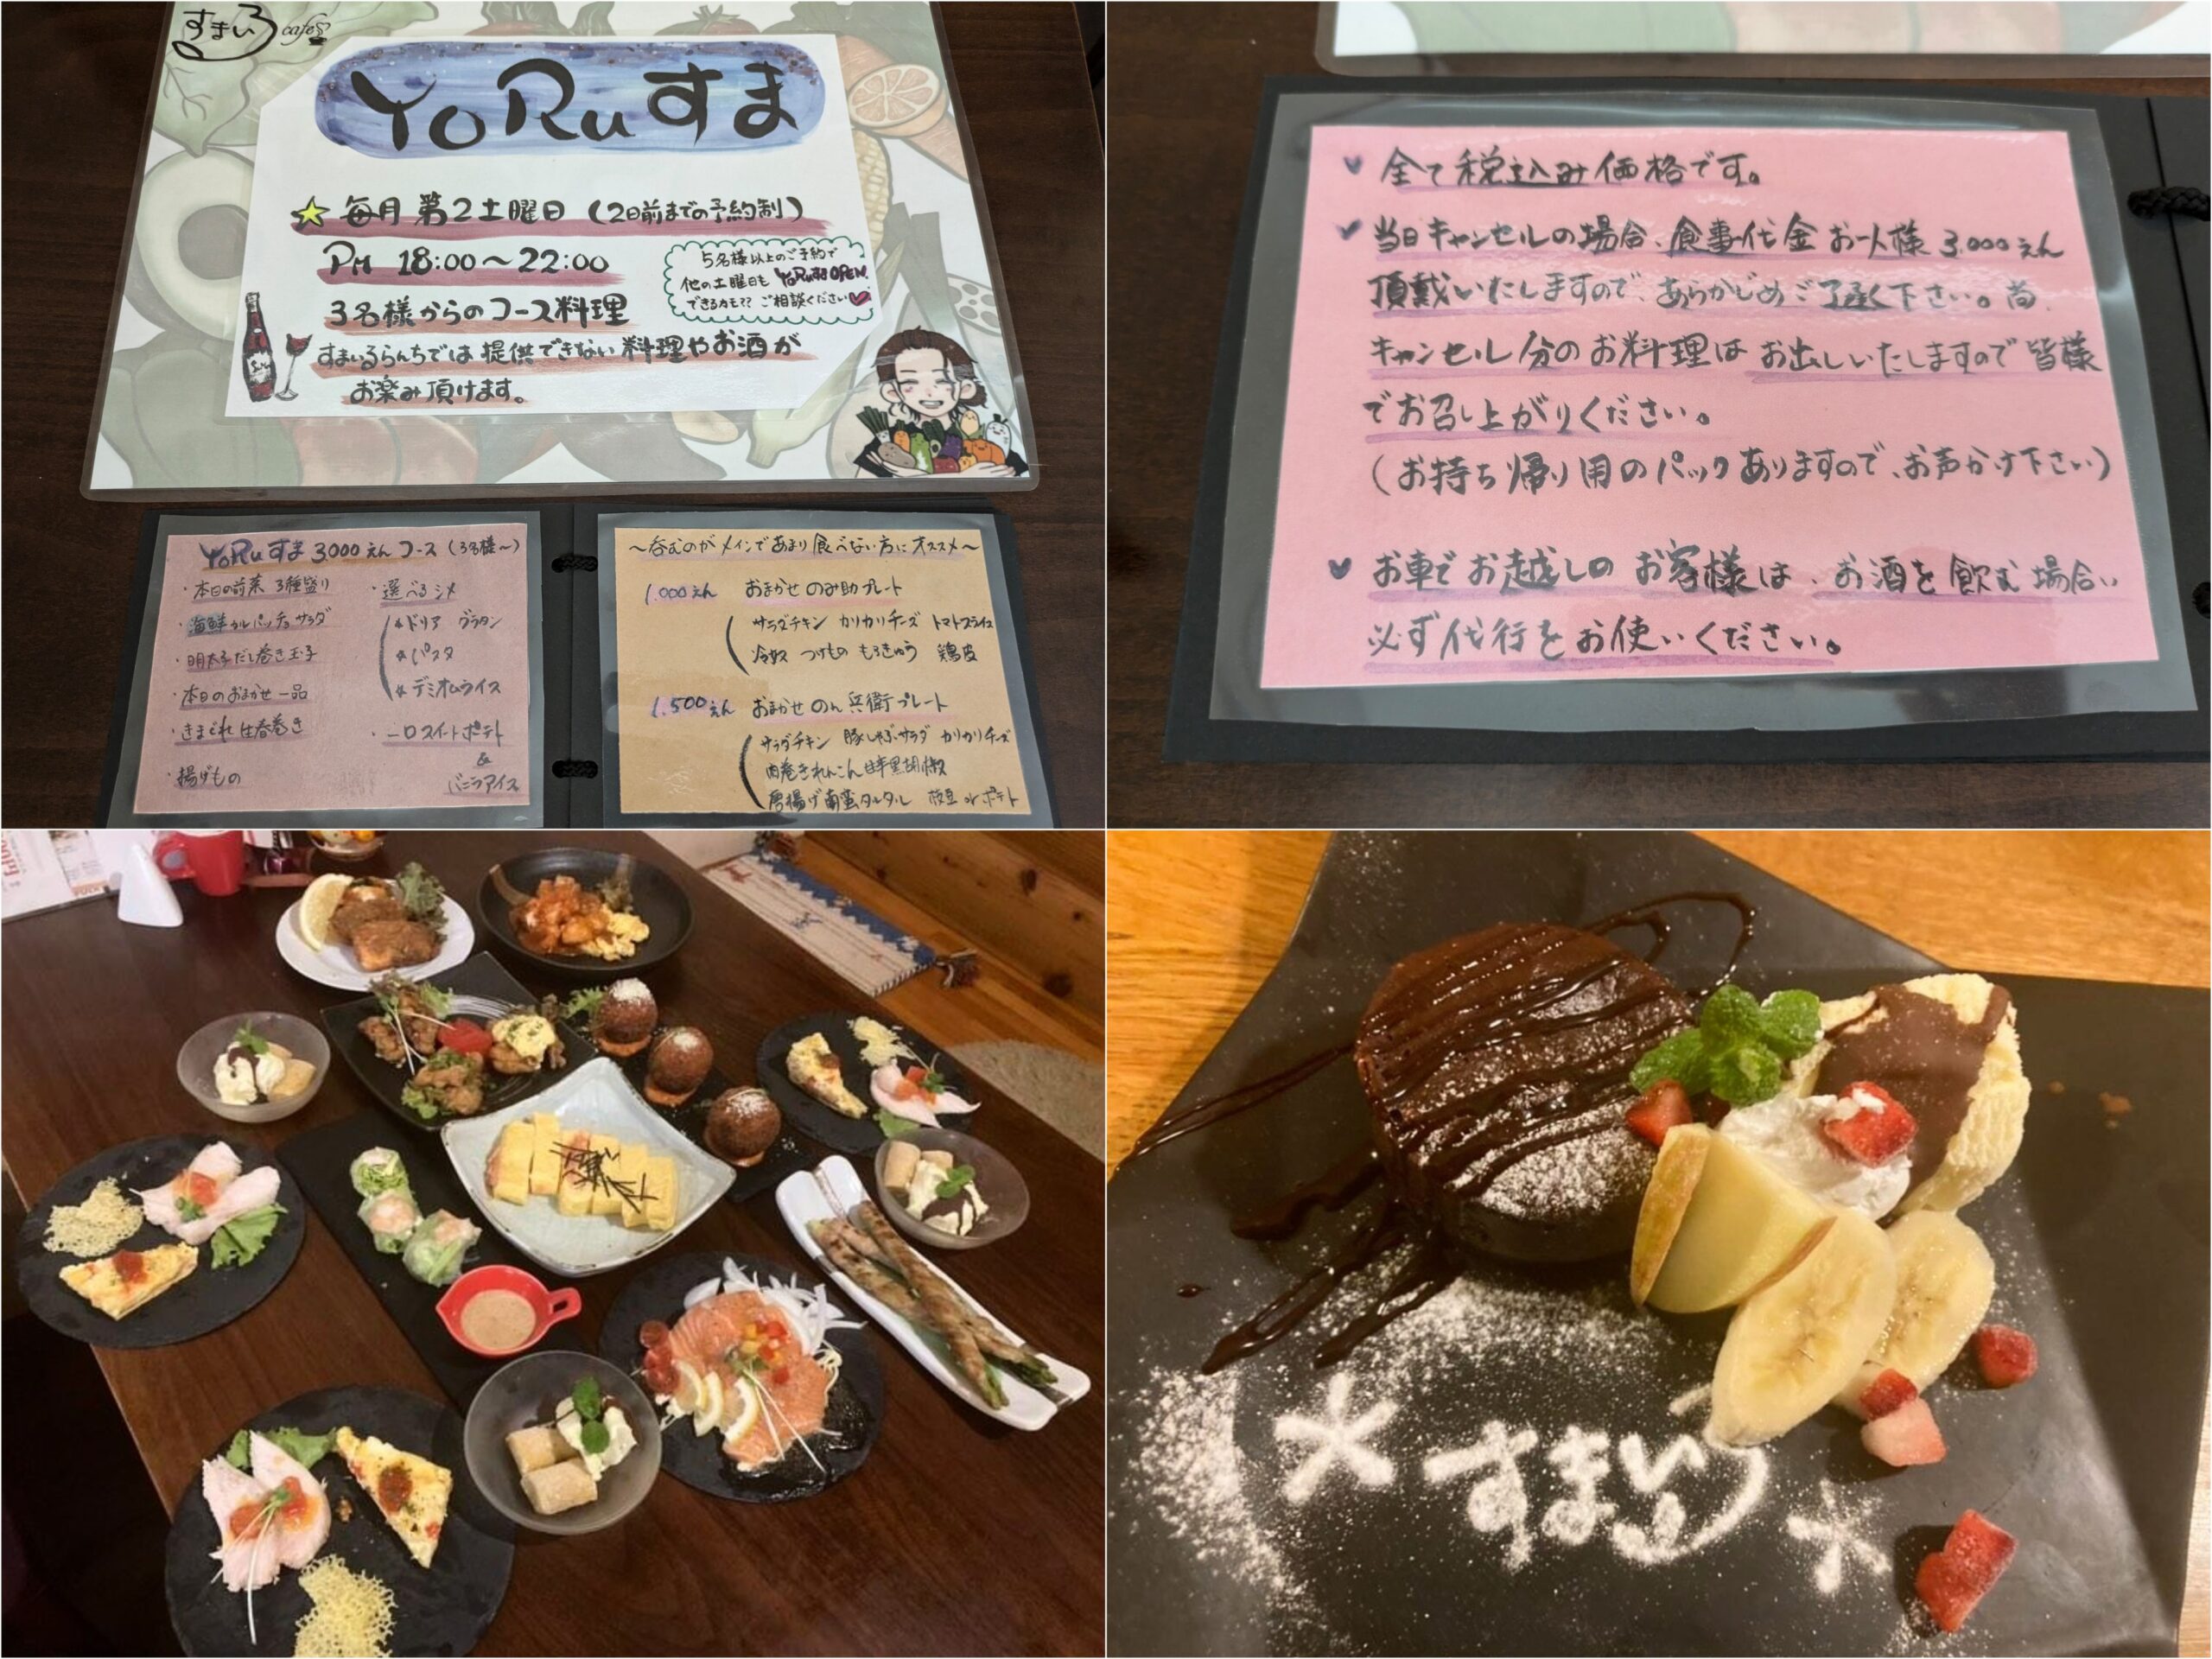 すまいる cafe
YoRuすま
毎月 第2土曜日 (2日前までの予約制)
PM 18:00～22:00
5名様以上のご予約で
他の土曜日も YoRuすま OPEN
できるカモ?? ご相談ください
3名様からのコース料理
すまいるらんちでは提供できない料理やお酒が
お楽み頂けます。
YoRuすま 3000えん コース (3名様～)
・本日の前菜 3種盛り
・海鮮カルパッチョサラダ
・明太子だし巻き玉子
・本日のおまかせ一品
・きまぐれ生春巻き
・揚げもの
・選べるシメ
ドリア グラタン
パスタ
デミオムライス
・一口スイートポテト
&
バニラアイス
～呑むのがメインであまり食べない方にオススメ～
1.000えん おまかせ のみ助プレート
サラダチキン カリカリチーズ トマトスライス
冷奴 つけもの もろきゅう 鶏皮
1.500えん おまかせ のん兵衛プレート
サラダチキン 豚しゃぶサラダ カリカリチーズ
肉巻きれんこん甘辛黒胡椒
唐揚げ南蛮タルタル 枝豆 or ポテト
全て税込み価格です。
当日キャンセルの場合、食事代金 お一人様 3.000えん
頂戴いたしますので、あらかじめご了承く下さい。尚、
キャンセル分のお料理はお出しいたしますので皆様
でお召し上がりください。
(お持ち帰り用のパックありますので、お声かけ下さい)
お車でお越しのお客様は、お酒を飲む場合い
必ず代行をお使いください。
すまいる